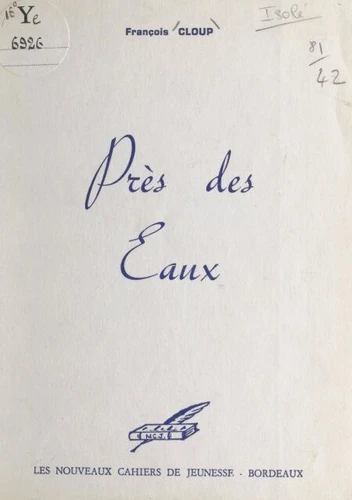 16° Ye
6926
François CLOUP
Isolé
81/42
Près des
Eaux
N.C.J.
LES NOUVEAUX CAHIERS DE JEUNESSE - BORDEAUX